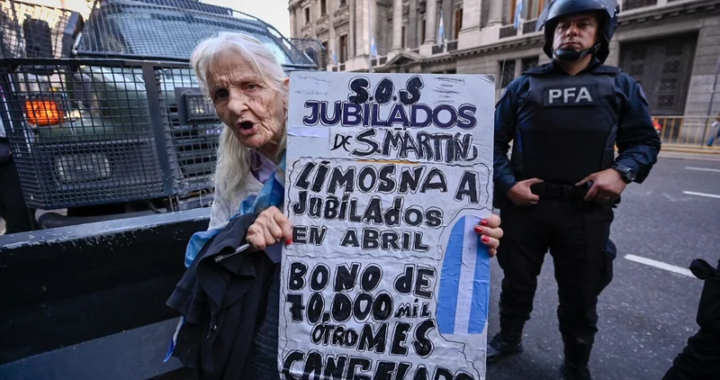 PFA
S.O.S
JUBILADOS
DE S. MARTÍN
LIMOSNA A
JUBILADOS
EN ABRIL
BONO DE
70.000 MIL
OTRO MES
CONGELADO
PFA